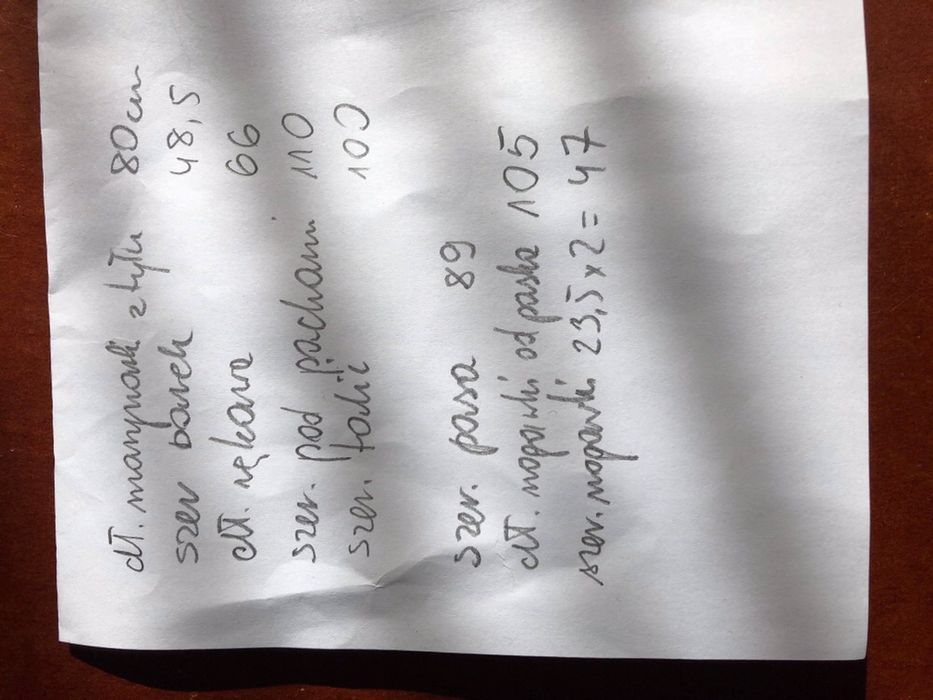 dł. marynarki z tyłu 80cm
szer barek 48,5
dł. rękawa 66
szer. pod pachami 110
szer. talii 100
szer. pasa 89
dł. nogawki od paska 105
szer. nogawki 23,5 x 2 = 47